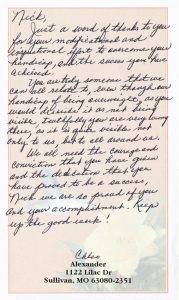 Nick,
Just a word of thanks to you
for your modification and
inspirational effort to overcome your
handicap, and the success you have
achieved.
You are truly someone that we
can all relate to, even though our
handicap of being overweight, as you
would describe it as not being
visible. Thankfully you are very loving
there, as it is quite visible not
only to us, but to all around us.
We all need the courage and
conviction that you have given
and the dedication that you
have proved to be a success,
Nick we are so proud of you
and your accomplishment. Keep
up the good work!
Alexander
1122 Lilac Dr
Sullivan, MO 63080-2351